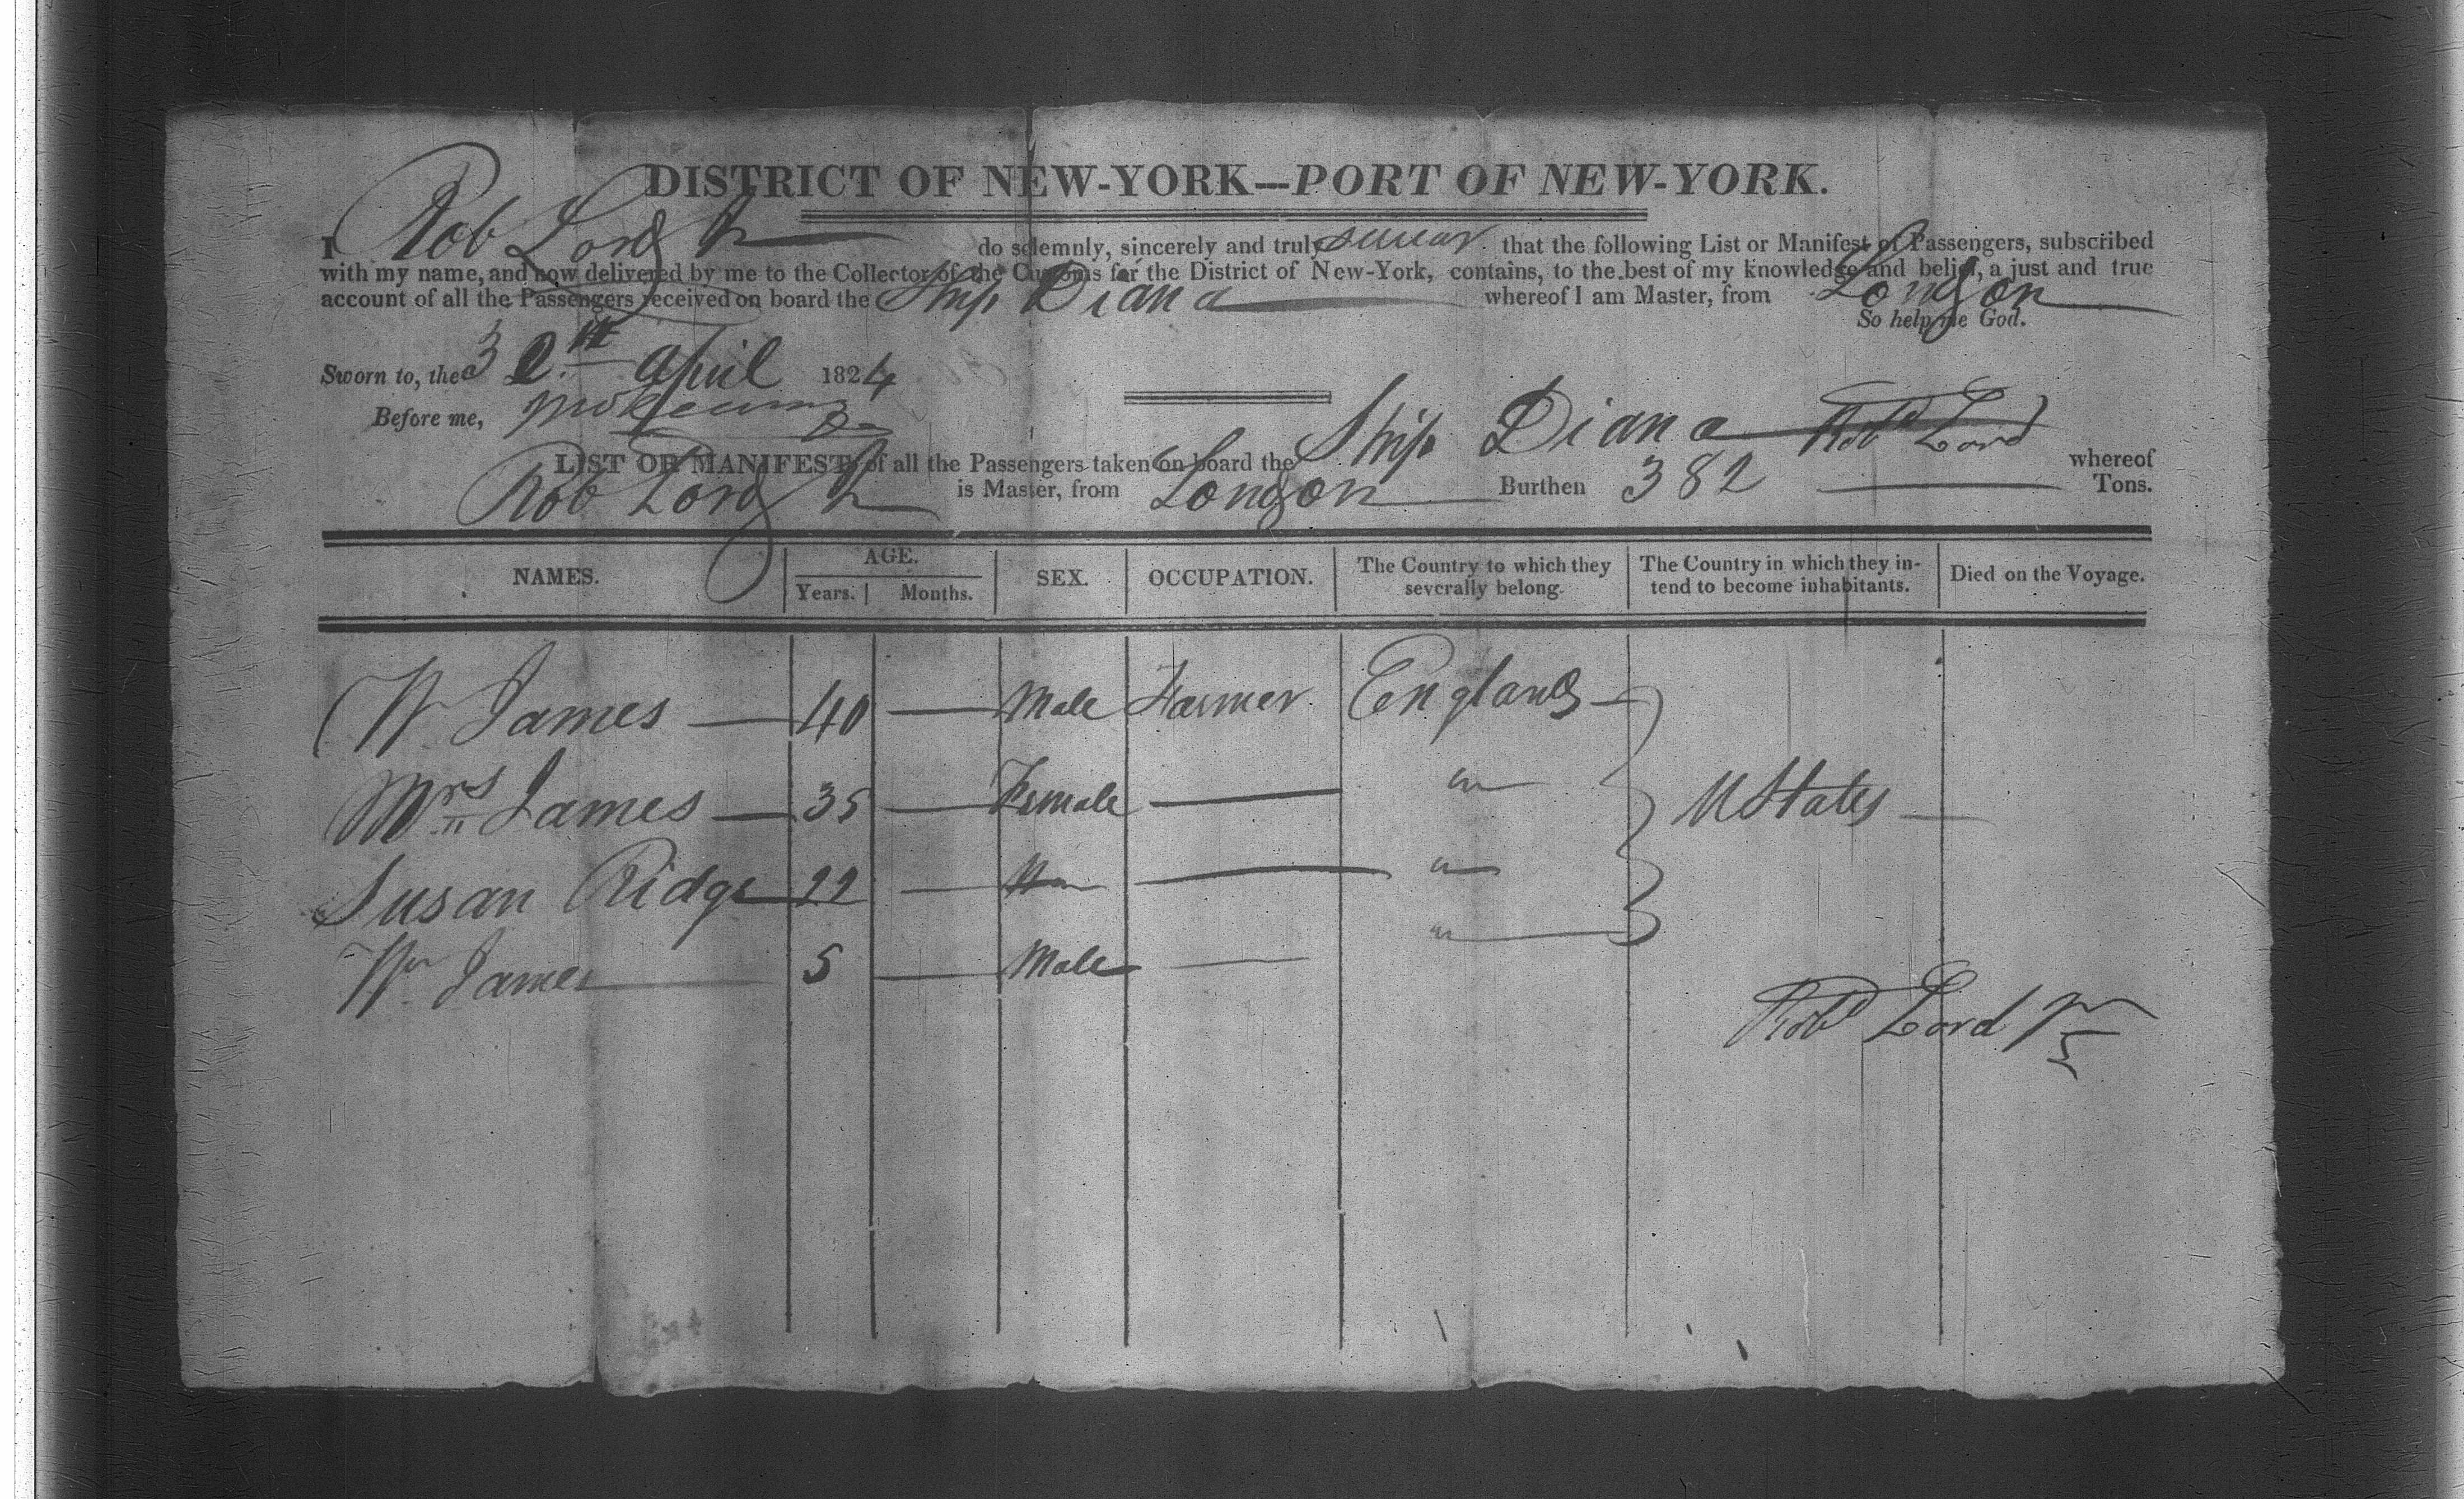 DISTRICT OF NEW-YORK—PORT OF NEW-YORK.
I Rob Lord Jr do solemnly, sincerely and truly swear that the following List or Manifest of Passengers, subscribed
with my name, and now delivered by me to the Collector of the Customs for the District of New-York, contains, to the best of my knowledge and belief, a just and true
account of all the Passengers received on board the Ship Diana whereof I am Master, from London
So help me God.
Sworn to, the April 1824
Before me,
LIST OR MANIFEST of all the Passengers taken on board the Ship Diana Robt Lord whereof
Rob Lord Jr is Master, from London Burthen 382 Tons.
NAMES. AGE. Years. Months. SEX. OCCUPATION. The Country to which they severally belong. The Country in which they intend to become inhabitants. Died on the Voyage.
W James — 40 — Male Farmer England —
Mrs James — 35 — Female — " U States —
Susan Ridge 22 — " — "
Wm James 5 — Male — "
Robt Lord Jr